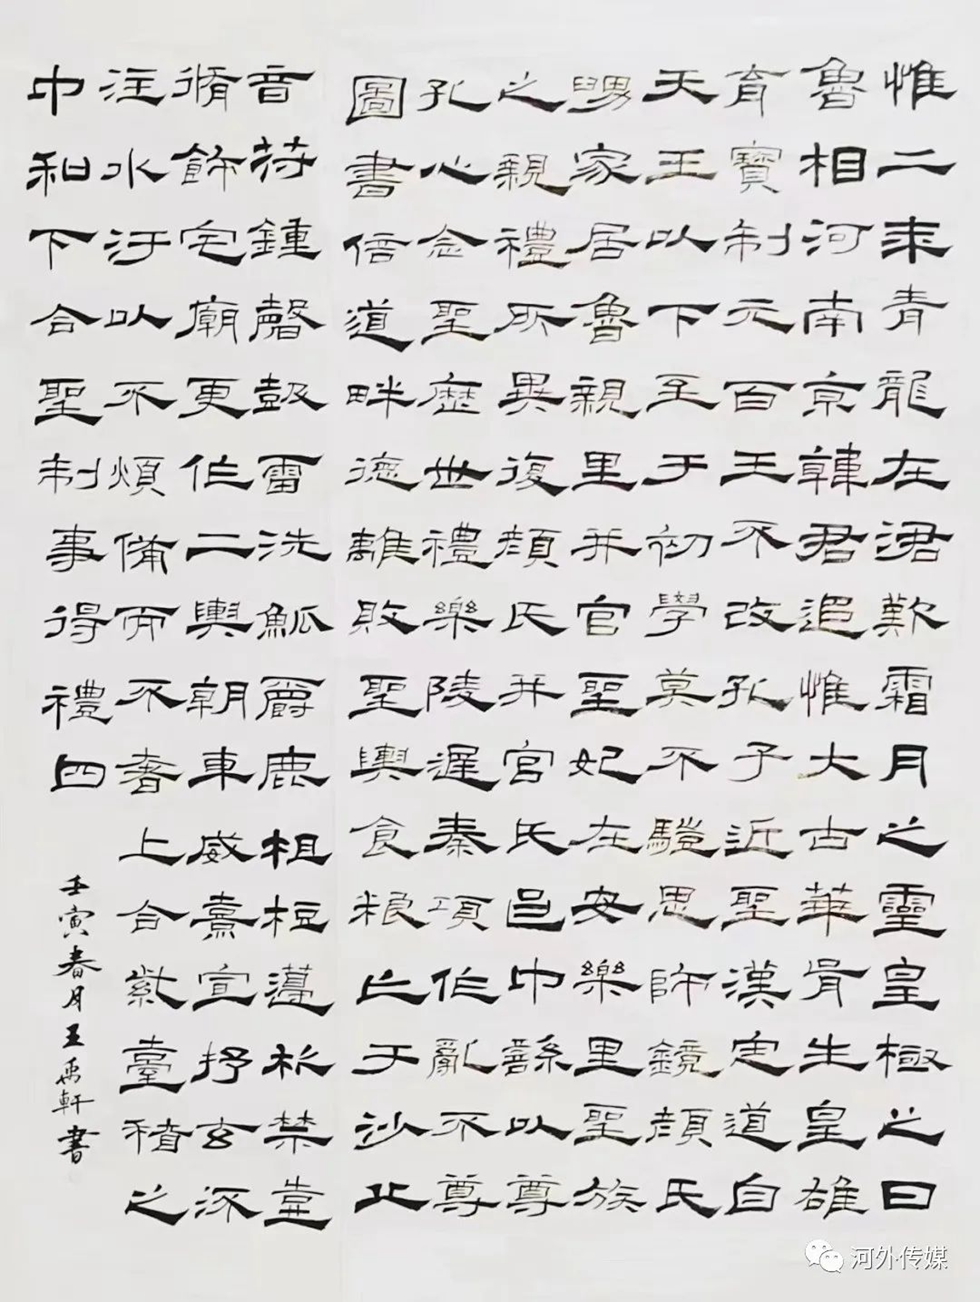 惟二年青龍在涒歎霜月之靈皇極之日
魯相河南京韓君追惟大古華胥生皇雄
育寶制元百王不改孔子近聖漢定道自
天王以下至于初學莫不驥思師鏡顏氏
舅家居魯親里并官聖妃在安樂里聖族
之親禮所異復顏氏并官氏邑中繇以尊
孔心念聖歷世禮樂陵遲秦項作亂不尊
圖書倍道畔德離敗聖輿食粮亡于沙丘
音符鍾磬鼓雷洗觚爵鹿柤梪籩柉禁壺
脩飾宅廟更作二輿朝車威熹宣抒玄汙
注水汙以不煩備而不奢上合紫臺稽之
中和下合聖制事得禮四
壬寅春月王禹軒書
河外传媒